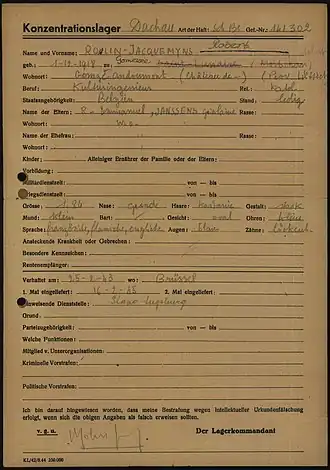 Konzentrationslager Dachau Art der Haft: Sch. Bs. Gef.-Nr.: 141302
Name und Vorname: ROLIN-JACQUEMYNS Robert
geb.: 1-12-1918 zu: Gomzée
Wohnort: Gomzé-Andoumont (Château de-) (Prov
Beruf: Kulturingenieur Rel.: kathol
Staatsangehörigkeit: Belgien Stand: ledig
Namen der Eltern: R- Emmanuel, JANSSENS
Wohnort: w.o.
Name der Ehefrau:
Wohnort:
Kinder: Alleiniger Ernährer der Familie oder der Eltern:
Vorbildung:
Militärdienstzeit: von — bis
Kriegsdienstzeit: von — bis
Grösse: 1.84 Nase: gerade Haare: Gestalt: stark
Mund: klein Bart: Gesicht: oval Ohren: kleine
Sprache: französisch, flämische, englische Augen: blau Zähne:
Ansteckende Krankheit oder Gebrechen:
Besondere Kennzeichen:
Rentenempfänger:
Verhaftet am: wo: Brüssel
1. Mal eingeliefert: 2. Mal eingeliefert:
Einweisende Dienststelle:
Grund:
Parteizugehörigkeit: von — bis
Welche Funktionen:
Mitglied v. Unterorganisationen:
Kriminelle Vorstrafen:
Politische Vorstrafen:
Ich bin darauf hingewiesen worden, dass meine Bestrafung wegen intellektueller Urkundenfälschung
erfolgt, wenn sich die obigen Angaben als falsch erweisen sollten.
v. g. u. Der Lagerkommandant
KL/42/8.44 500.000